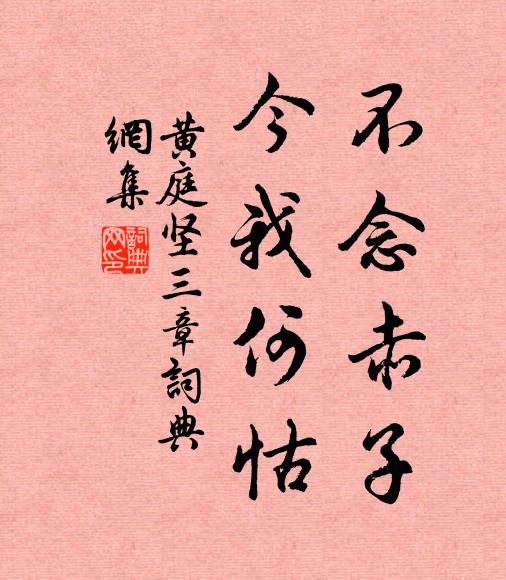 不念赤子
今我何怙
黄庭坚三章詞典
網集
詞典
网印